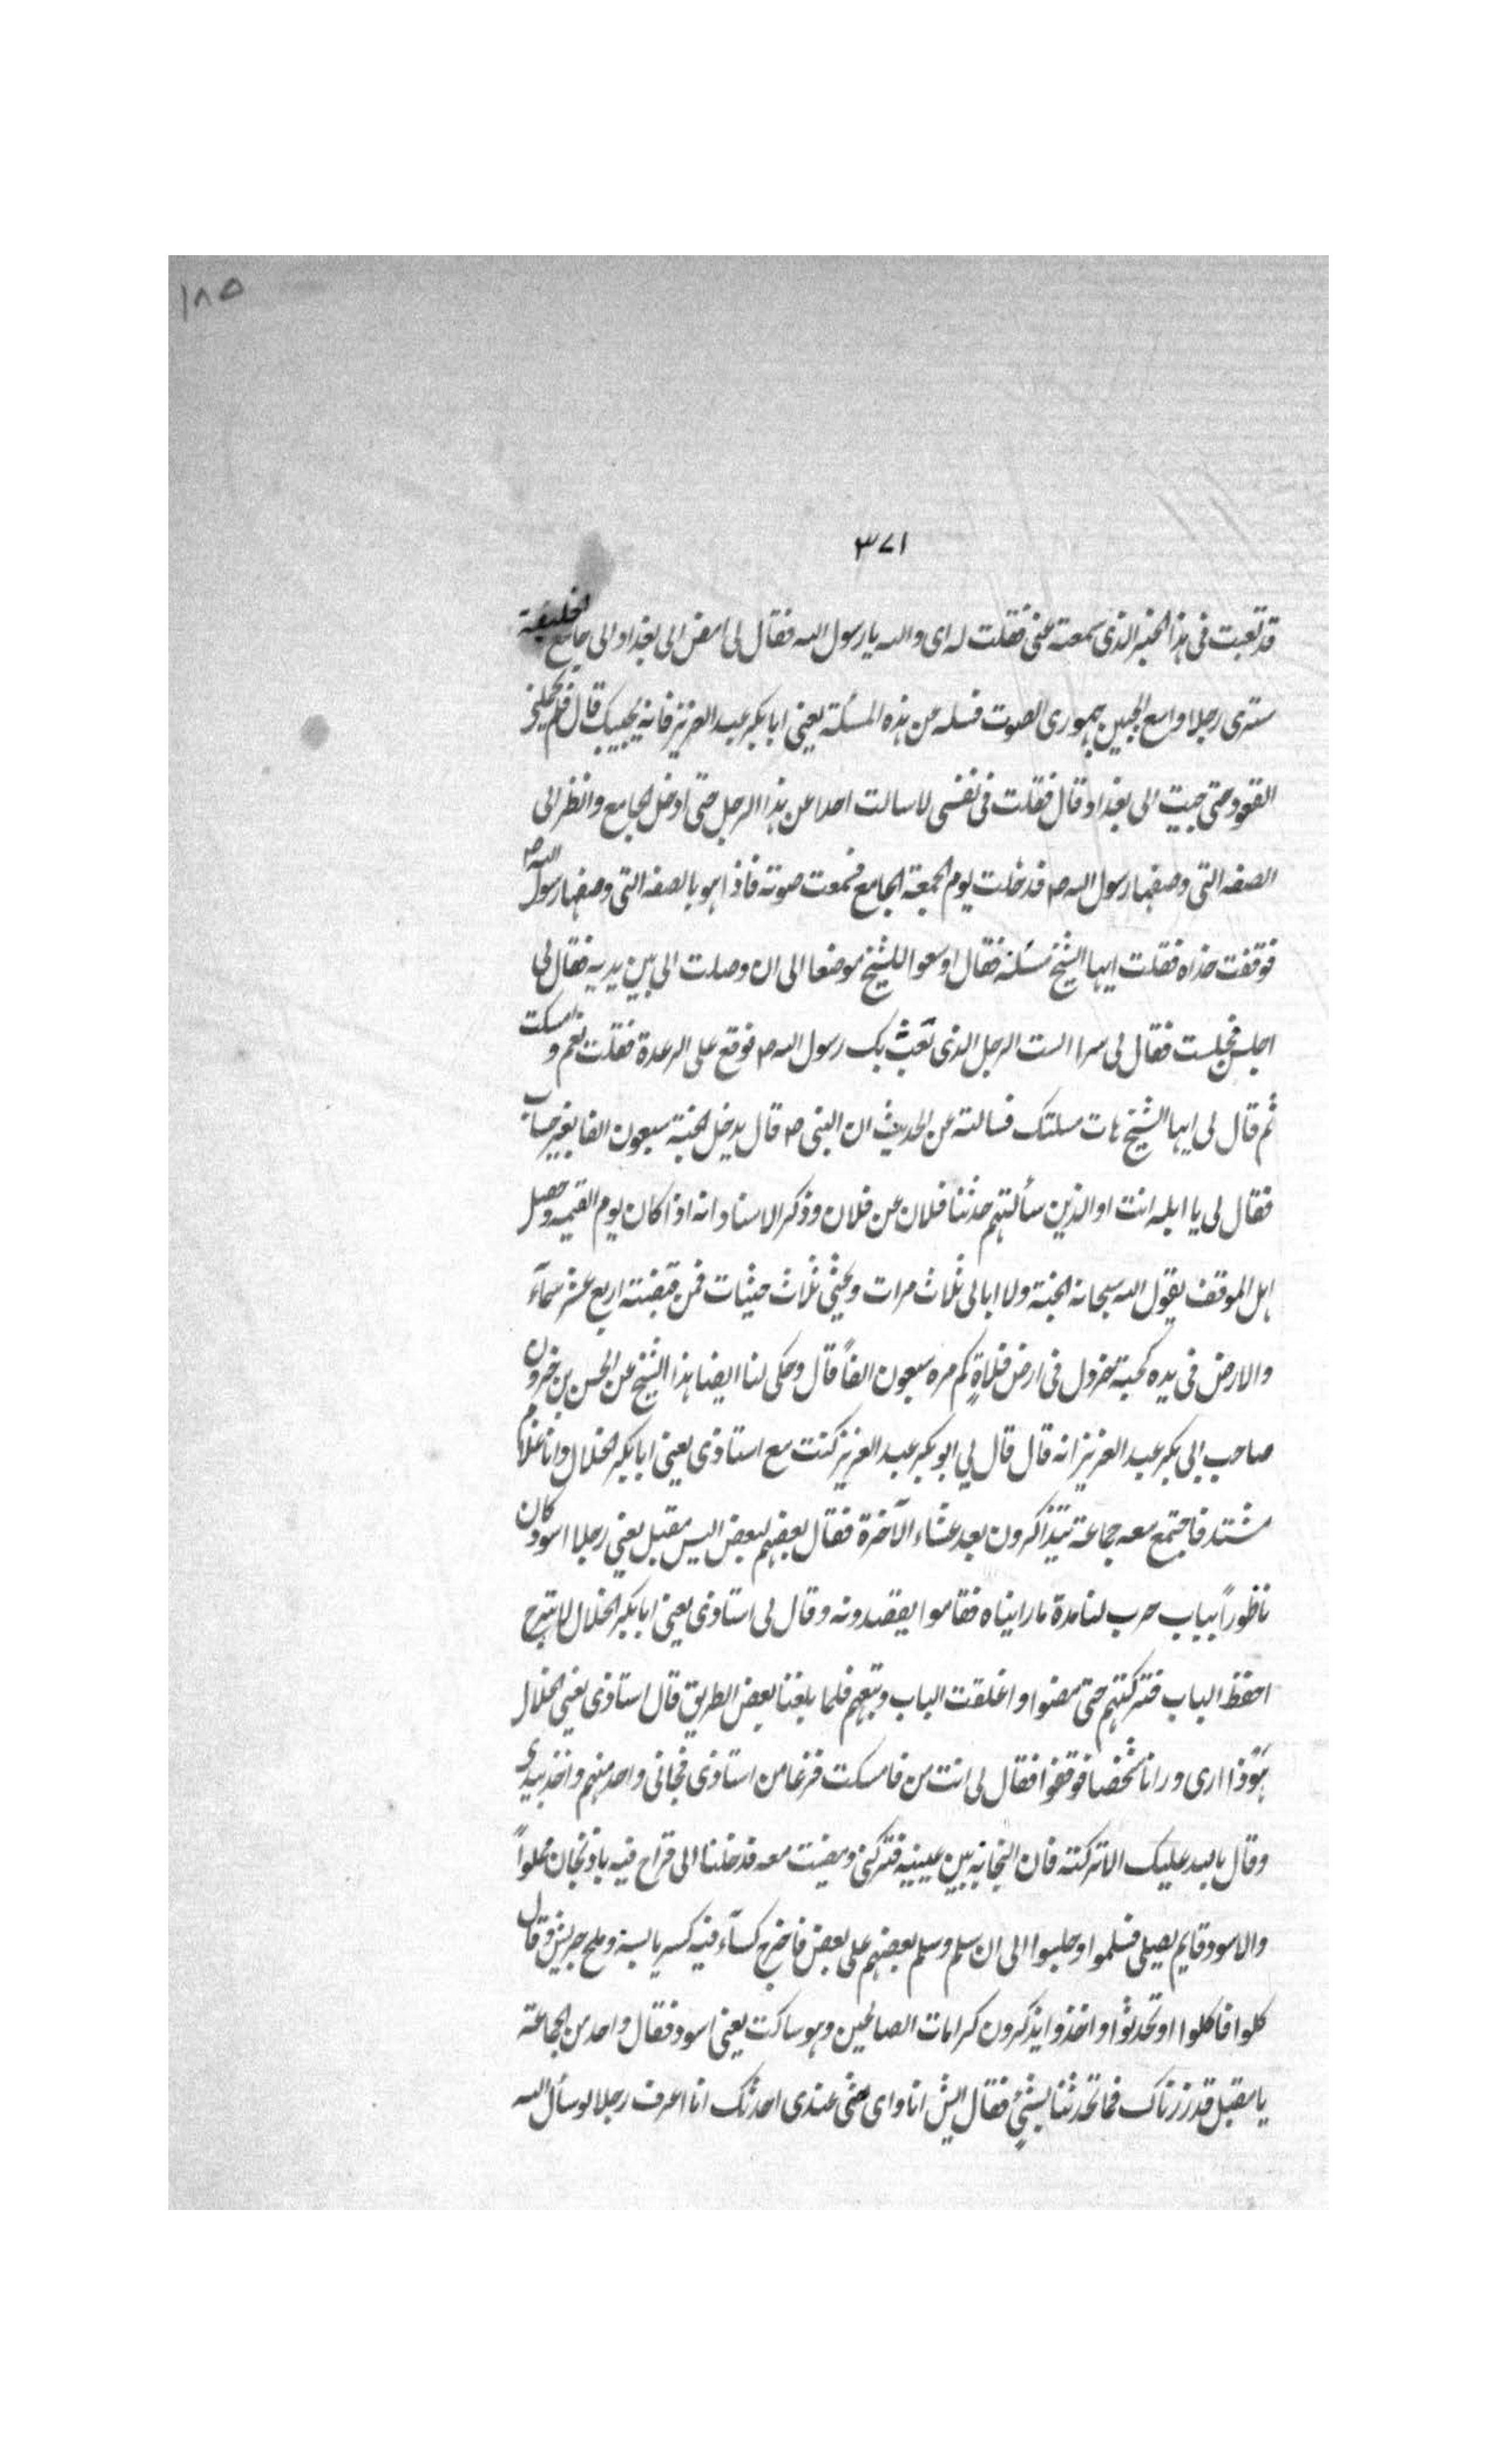 ١٨٥
٣٧١
قد تعبت فى هذا الخبر الذى سمعته عنى فقلت له اى والله يا رسول الله فقال لى امض الى بغداد والى جامع الخليفة
سترى رجلا واسع الجبين جهورى الصوت فسله عن هذه المسئلة يعنى ابا بكر عبد العزيز فانه يجيبك قال فلم يحملنى
القعود حتى جيت الى بغداد قال فقلت فى نفسى لا سالت احدا عن هذا الرجل حتى ادخل الجامع وانظر الى
الصفه التى وصفها رسول الله ص فدخلت يوم الجمعة الجامع فسمعت صوته فاذا هو بالصفه التى وصفها رسول الله ص
فوقفت حذاه فقلت ايها الشيخ مسئلة فقال اوسعوا للشيخ موضعا الى ان وصلت الى بين يديه فقال لى
اجلس فجلست فقال لى سرا الست الرجل الذى بعث بك رسول الله ص فوقع على الرعدة فقلت نعم وامسكت
ثم قال لى ايها الشيخ هات مسلتك فسالته عن الحديث ان النبى ص قال يدخل الجنة سبعون الفا بغير حساب
فقال لى يا ابله انت او الذين سألتهم حدثنا فلان عن فلان وذكر الاسناد انه اذا كان يوم القيمه وحصل
اهل الموقف يقول الله سبحانه الجنة ولا ابالى ثلاث مرات ويحثى ثلاث حيثيات فمن قبضته اربع عشر سمآء
والارض فى يده كحبة خردل فى ارض فلاةٍ كم مره سبعون الفاً قال وحكى لنا ايضا هذا الشيخ عن الحسن بن خيرون
صاحب ابى بكر عبد العزيز انه قال قال لى ابو بكر عبد العزيز كنت مع استاذى يعنى ابا بكر الخلال وانا غلام
مشتد فاجتمع معه جماعة يتذاكرون بعد عشاء الآخرة فقال بعضهم لبعض اليس مقبل يعنى رجلا اسود كان
ناظوراً بباب حرب لنا مدة ما رايناه فقاموا يقصدونه وقال لى استاذى يعنى ابا بكر الخلال لا تبرح
احفظ الباب فتركتهم حتى مضوا واغلقت الباب وتبعتهم فلما بلغنا بعض الطريق قال استاذى يعنى الخلال
هوذا ارى ورانا شخصا فوقفوا فقال لى انت من فامسكت فزعا من استاذى فجائى واحد منهم واخذ بيدى
وقال بالله عليك الا تركته فان النجابة بين عينيه فتركنى ومضيت معه فدخلنا الى قراح فيه باذنجان مملواً
والاسود قايم يصلى فسلموا وجلسوا الى ان سلم وسلم بعضهم على بعض فاخرج كسآء فيه كسر يابسة وملح جريش وقال
كلوا فاكلوا وتحدثوا واخذوا يذكرون كرامات الصالحين وهو ساكت يعنى اسود فقال واحد من الجماعة
يا مقبل قد زرناك فما تحدثنا بشئٍ فقال ايش انا واى شى عندى احدثك انا اعرف رجلا لو سأل الله